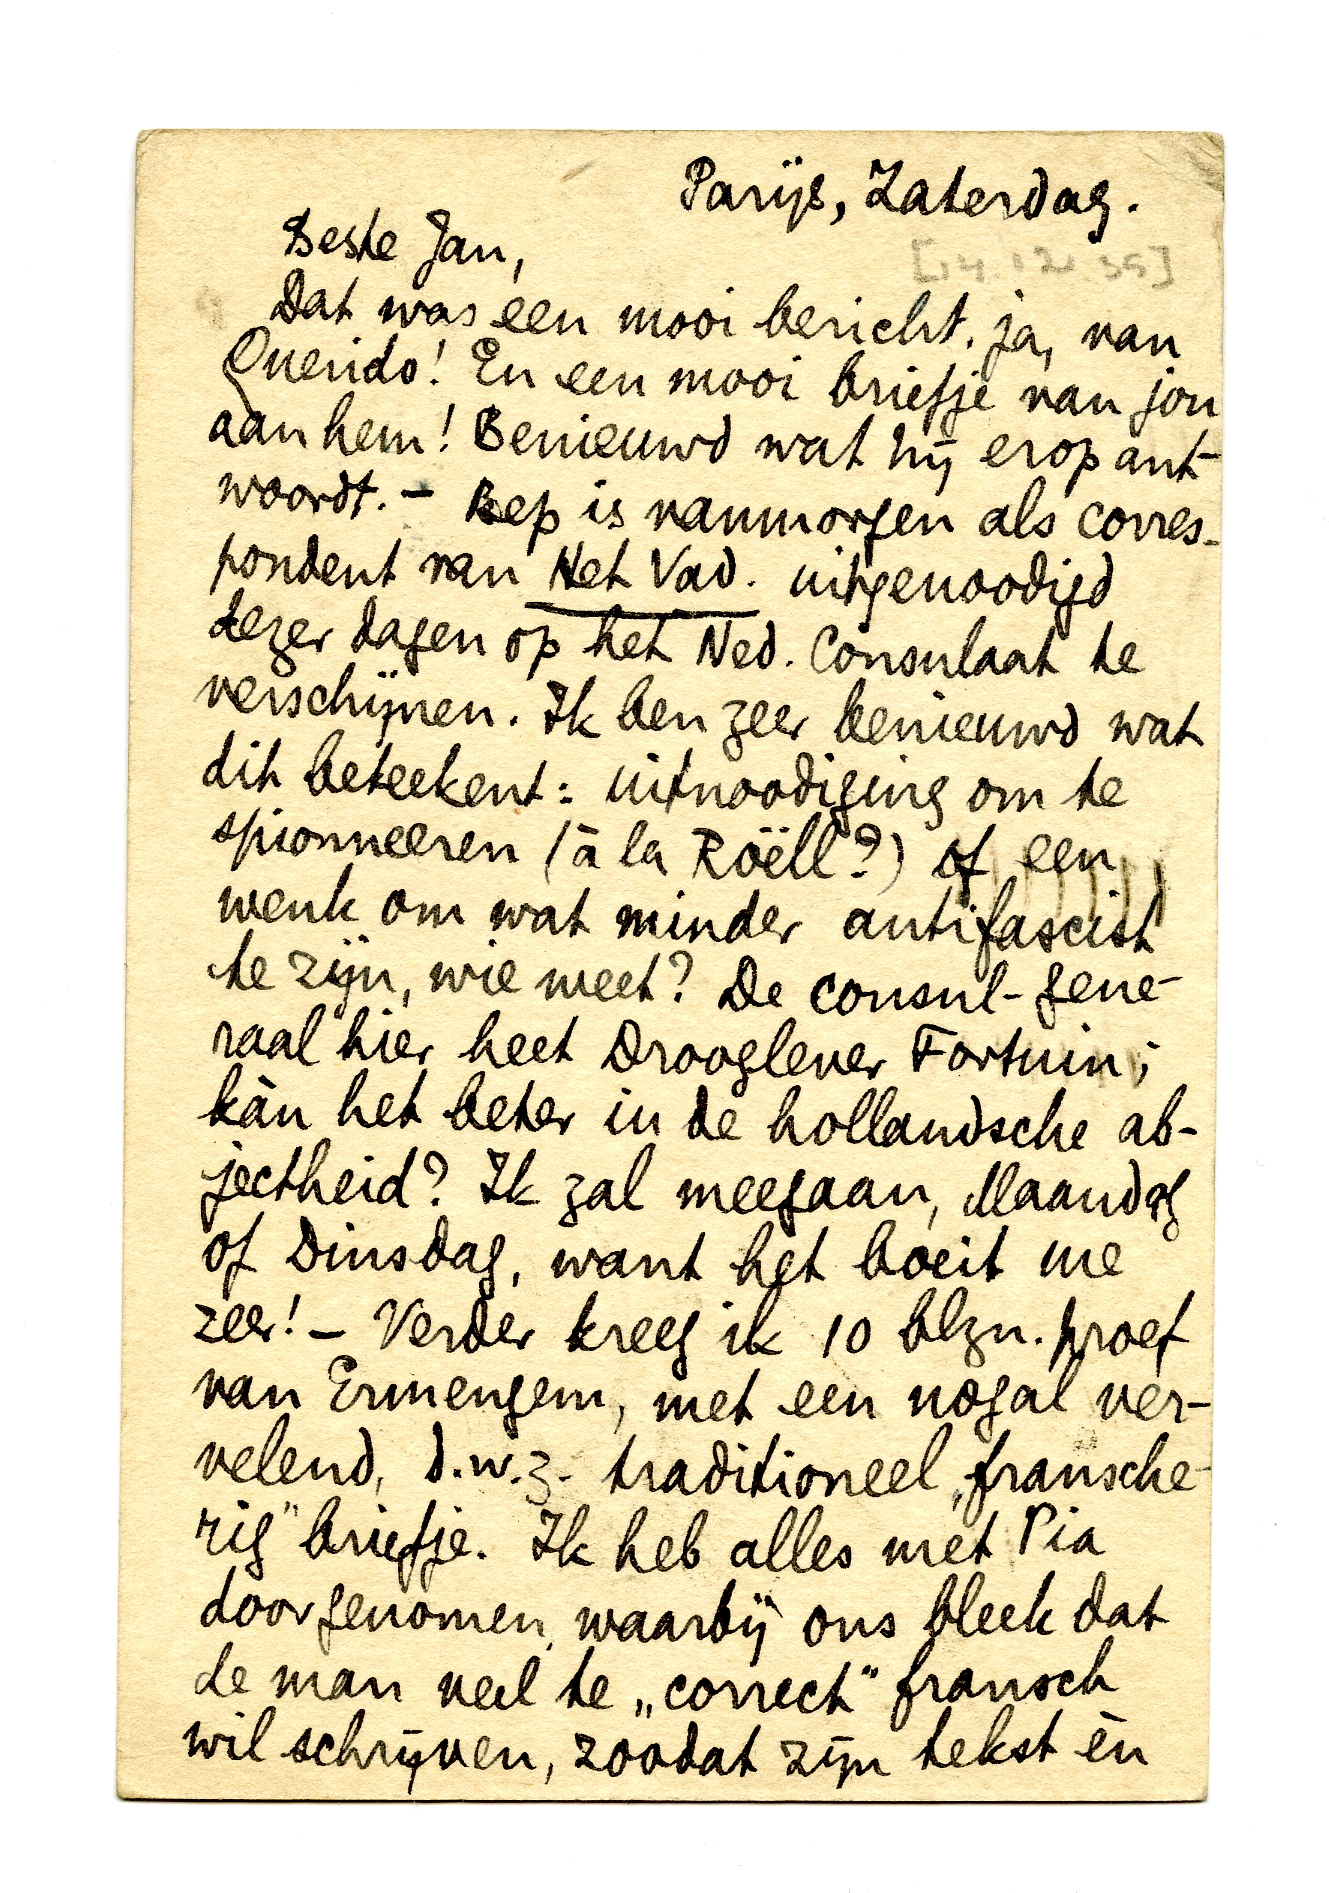 Parijs, Zaterdag.
[14.12.35]
Beste Jan,
Dat was een mooi bericht, ja, van
Querido! En een mooi briefje van jou
aan hem! Benieuwd wat hij erop ant-
woordt. – Bep is vanmorgen als corres-
pondent van Het Vad. uitgenoodigd
dezer dagen op het Ned. Consulaat te
verschijnen. Ik ben zeer benieuwd wat
dit beteekent: uitnoodiging om te
spionneeren (à la Röell?) of een
wenk om wat minder antifascist
te zijn, wie weet? De consul-gene-
raal hier heet Drooglever Fortuin;
kàn het beter in de hollandsche ab-
jectheid? Ik zal meegaan, Maandag
of Dinsdag, want het boeit me
zeer! – Verder kreeg ik 10 blzn. proef
van Ermengem, met een nogal ver-
velend, d.w.z. traditioneel „fransche-
rig" briefje. Ik heb alles met Pia
doorgenomen, waarbij ons bleek dat
de man veel te „correct" fransch
wil schrijven, zoodat zijn tekst èn